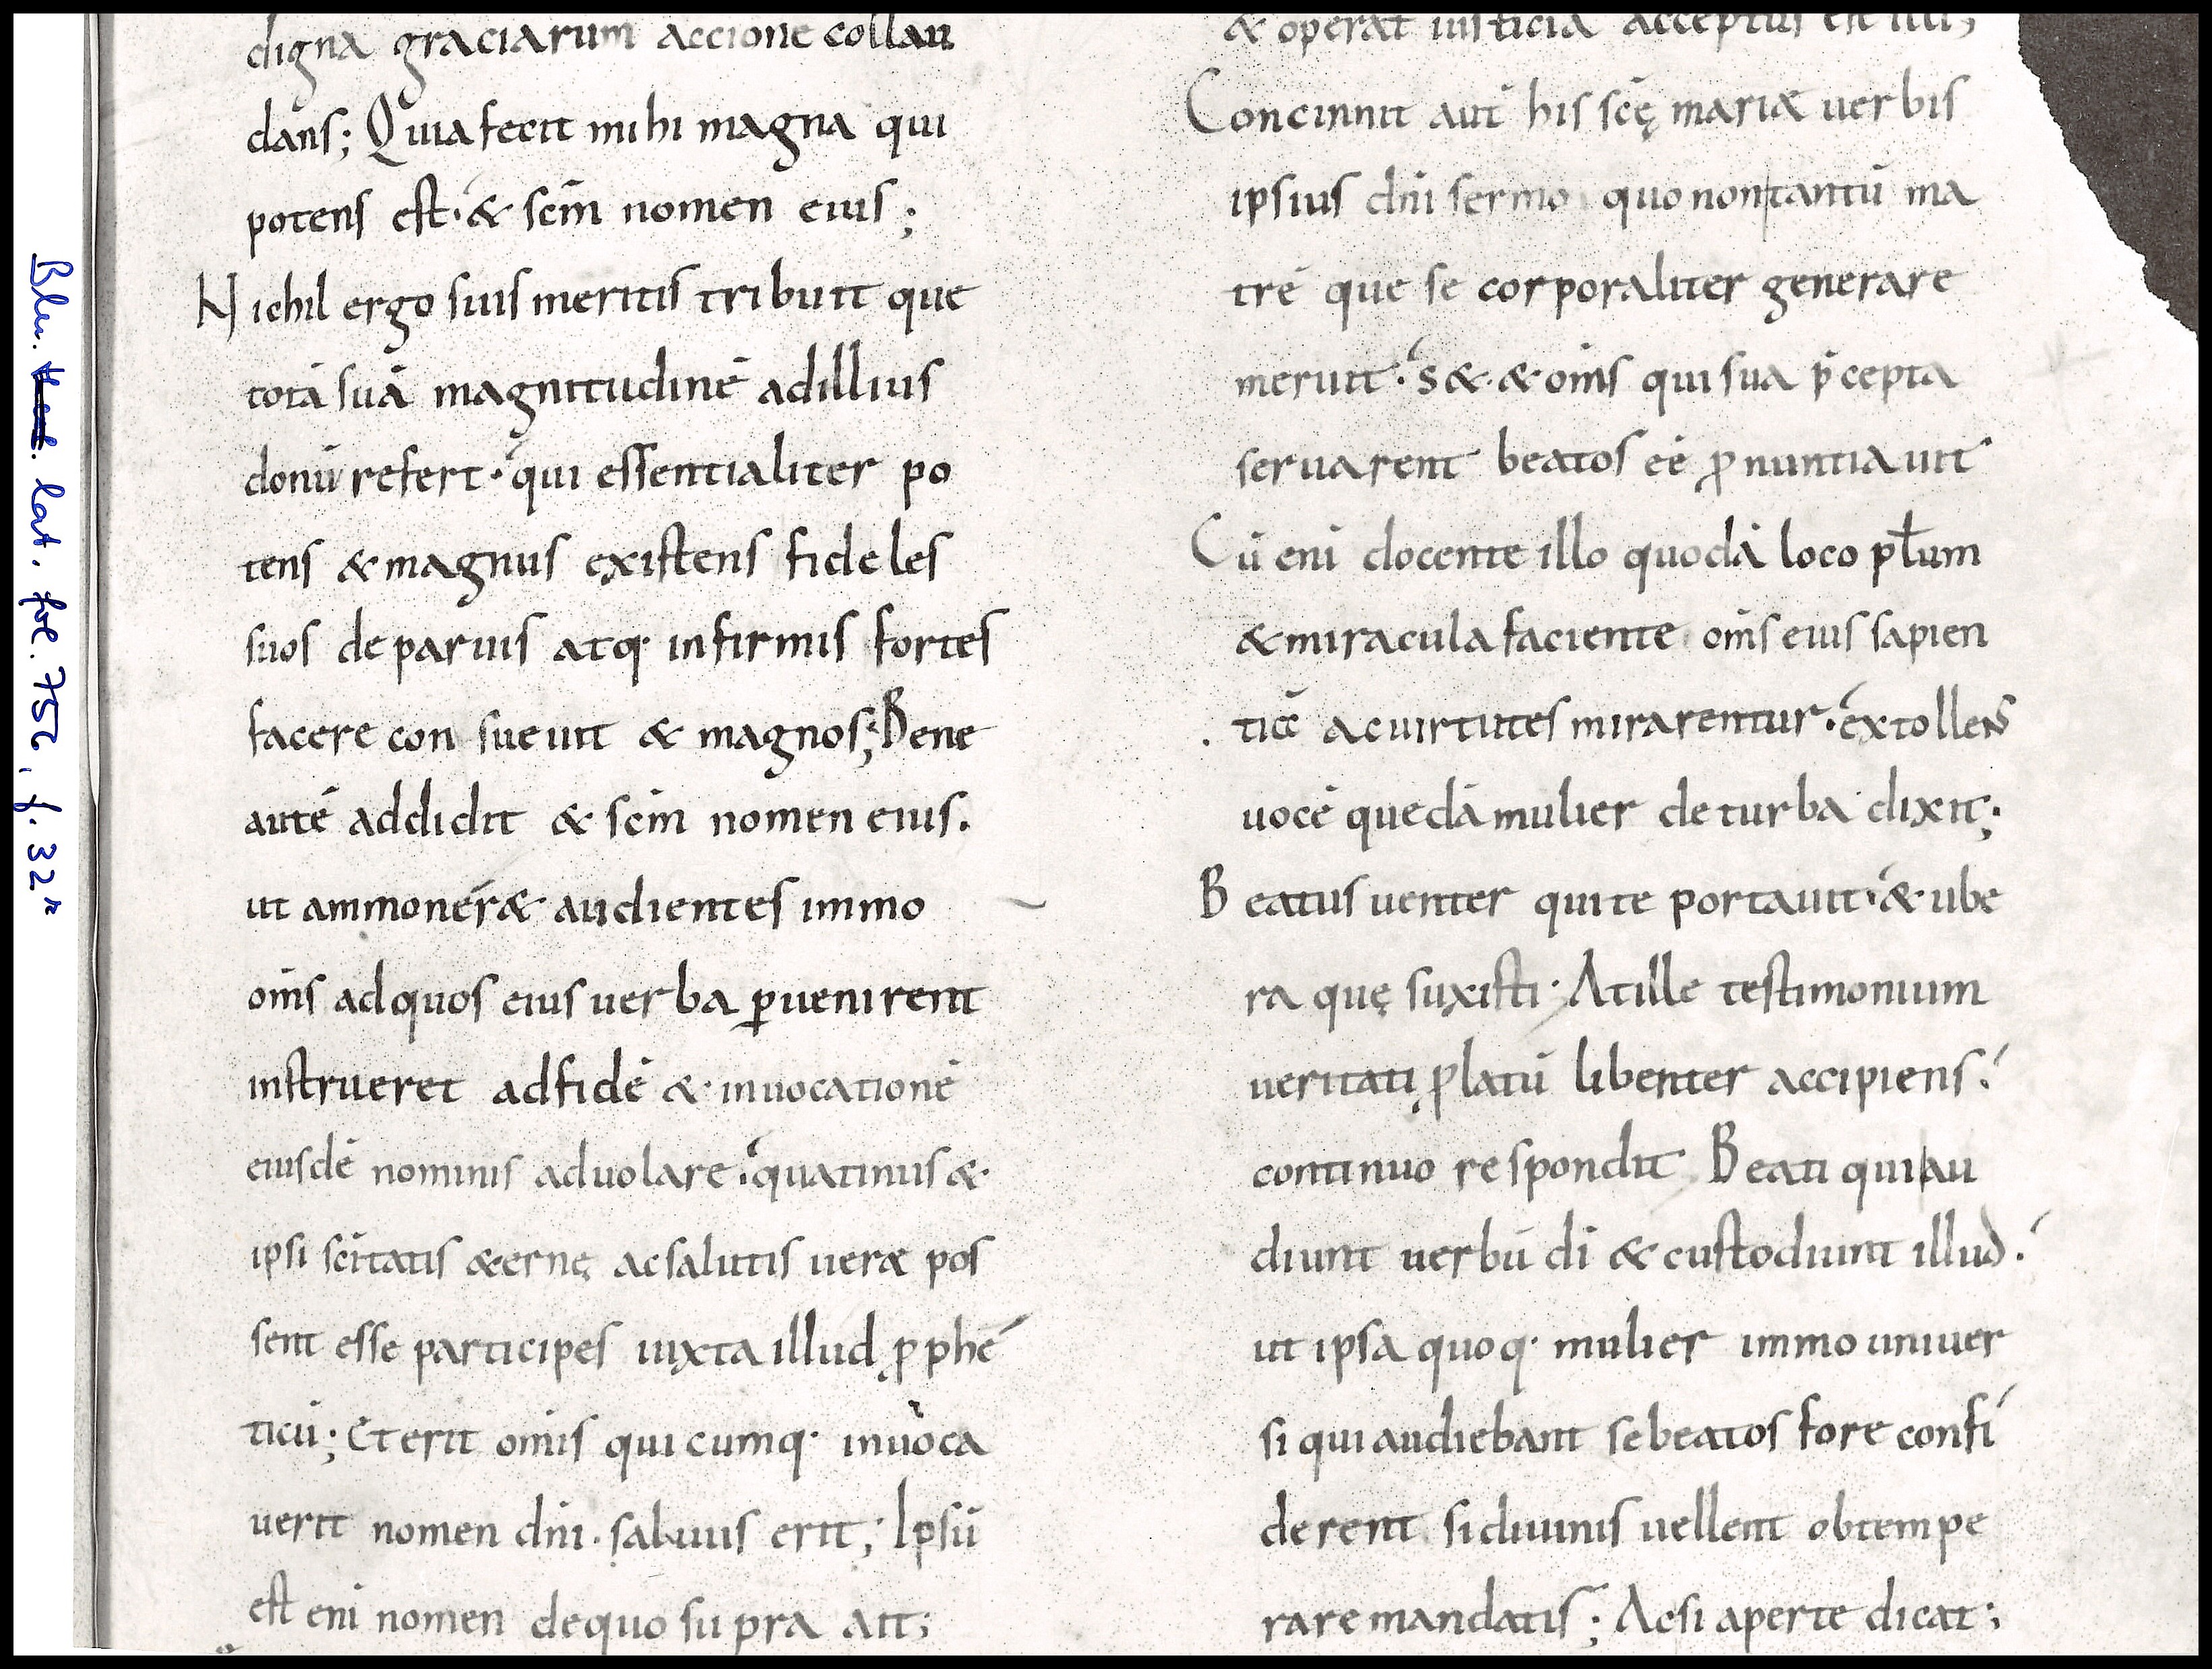 digna graciarum accione collau
dans; Quia fecit mihi magna qui
potens est· & scm̄ nomen eius;
Nichil ergo suis meritis tribuit que
totā suā magnitudinē ad illius
donū refert· qui essentialiter po
tens & magnus existens fideles
suos de paruis atq· infirmis fortes
facere con sueuit & magnos; Bene
autē addidit & scm̄ nomen eius.
ut ammoner& audientes immo
om̄s ad quos eius uerba ꝑuenirent
instrueret ad fidē & inuocationē
eiusdē nominis aduolare· quatinus &
ipsi sc̄itatis &ernę ac salutis ueræ pos
sent esse participes iuxta illud ꝓphe
ticū; Et erit omis qui cumq· inuoca
uerit nomen dn̄i· saluus erit; Ipsū
est eni nomen de quo supra ait;
& operat iusticiā acceptus est illi;
Concinnit aut̄ his scę̄ mariæ uerbis
ipsius dn̄i sermo quo non tantū ma
trē que se corporaliter generare
meruit· s& & om̄s qui sua p̄cepta
seruarent beatos eē ꝓnuntiauit
Cū eni docente illo quodā loco pl̄um
& miracula faciente om̄s eius sapien
tiā ac uirtutes mirarentur· extollens
uocē quedā mulier de turba dixit;
Beatus uenter qui te portauit· & ube
ra quę suxisti· At ille testimonium
ueritati ꝓlatū libenter accipiens·
continuo respondit Beati qui au
diunt uerbū dī & custodiunt illud·
ut ipsa quoq· mulier immo uniuer
si qui audiebant se beatos fore confi
derent si diuinis uellent obtempe
rare mandatis; Ac si aperte dicat;
Bln. lat. fol. 752, f. 32r